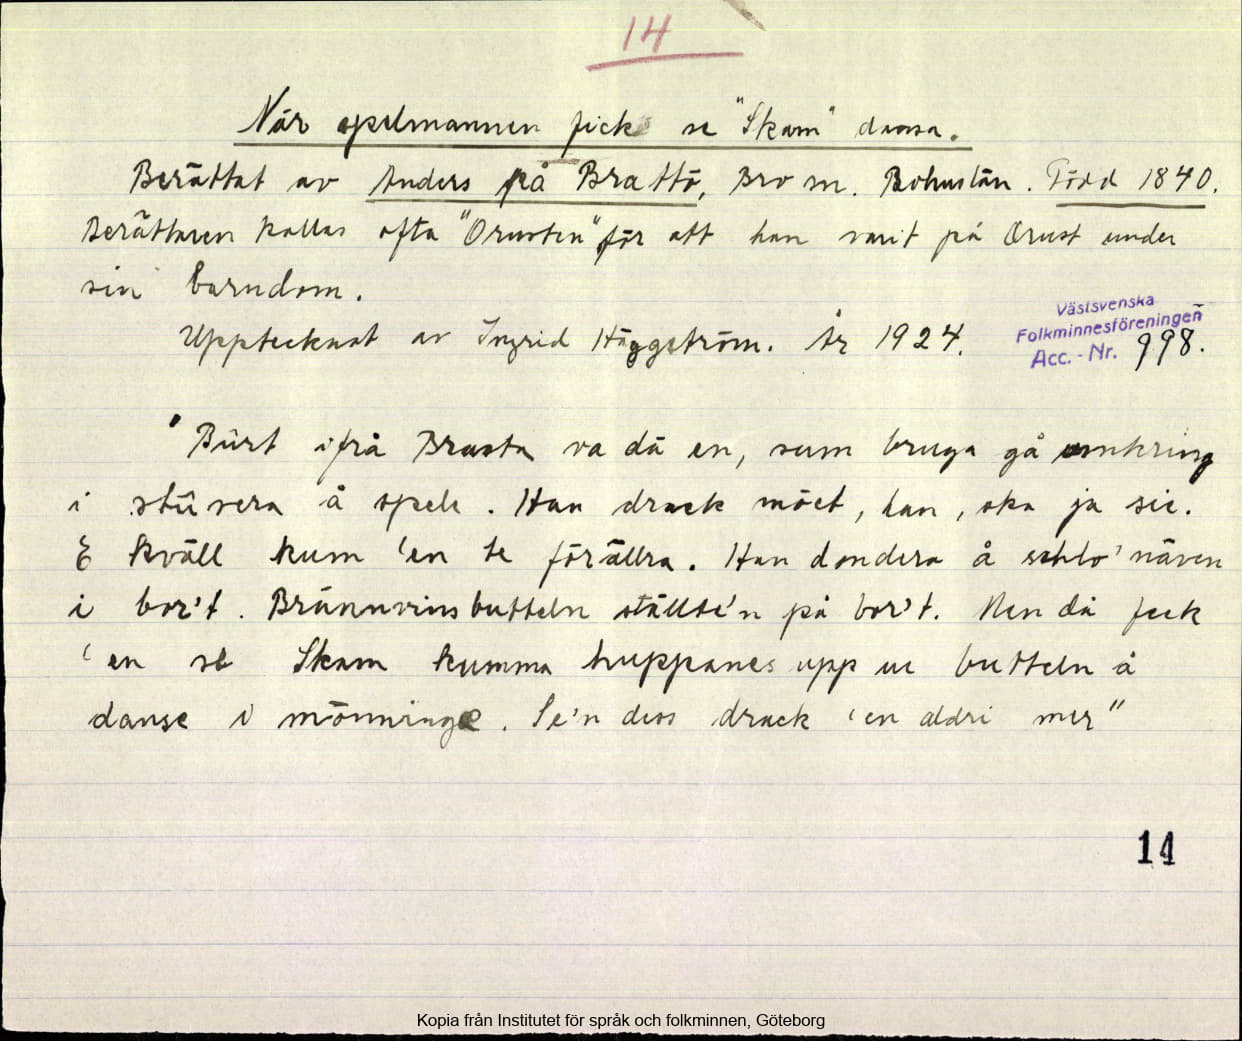 14
När spelmannen fick se "Skam" dansa.
Berättat av Anders på Brattö, Bro sn. Bohuslän. Född 1840.
Berättaren kallas ofta "Orusten" för att han varit på Orust under
sin barndom.
Upptecknat av Ingrid Häggström. År 1924.
Västsvenska
Folkminnesföreningen
Acc. - Nr. 998.
"Bûrt ifrå Brasta va dä en, sum bruga gå omkring
i stûvera å spele. Han drack möet, han, ska ja sie.
E kväll kum 'en te förällra. Han dondera å schlo' näven
i bor't. Brännvinsbutteln ställte'n på bor't. Men då feck
'en se Skam kumma huppanes upp ur butteln å
danse i mönninge. Se'n dess drack 'en aldri mer"
14
Kopia från Institutet för språk och folkminnen, Göteborg